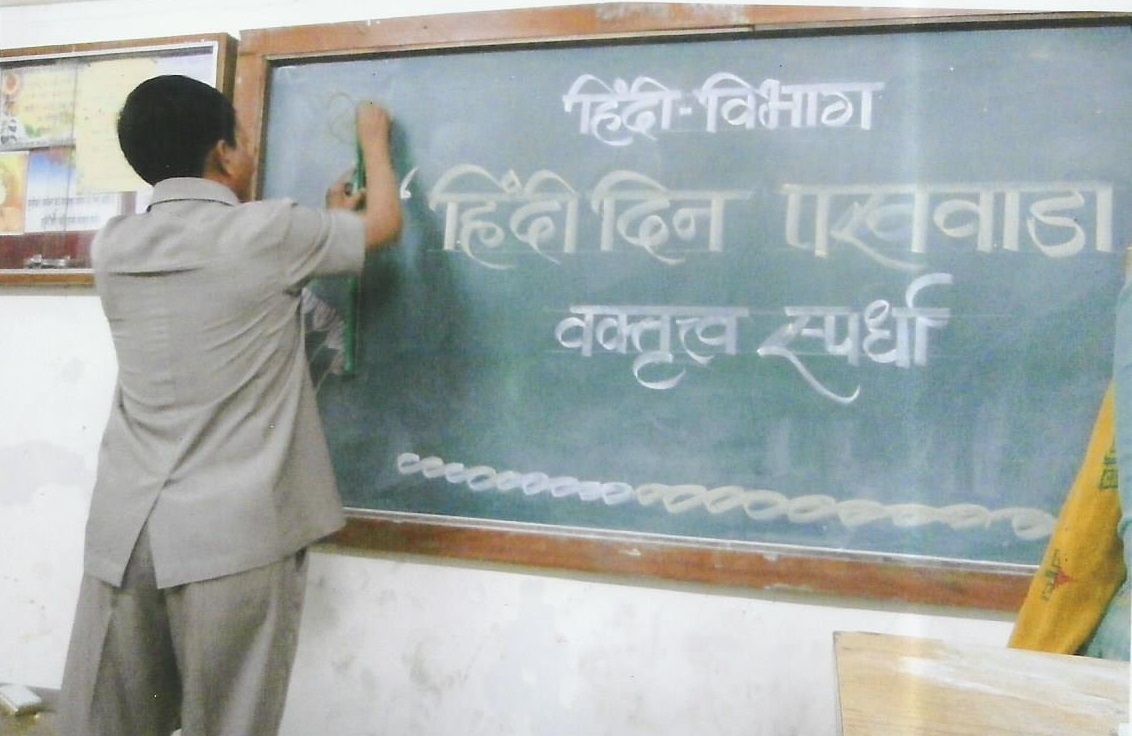 हिंदी-विभाग
“हिंदी दिन पखवाडा
वक्तृत्त्व स्पर्धा